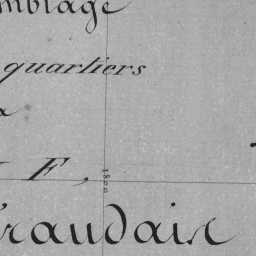 mblage
quartiers
F,
1800
raudair